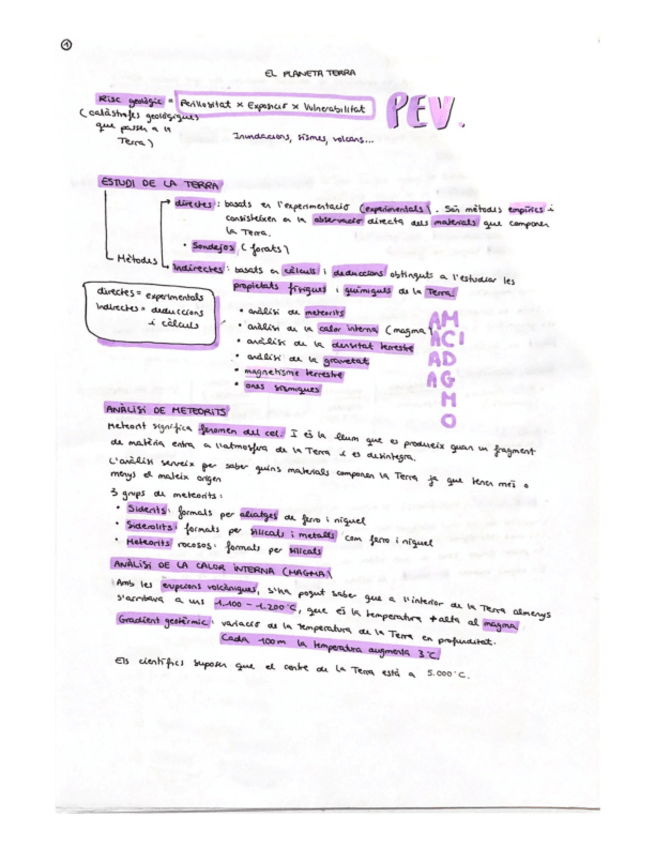 1
EL PLANETA TERRA
Risc geològic = Perillositat x Exposició x Vulnerabilitat
PEV.
(catàstrofes geològiques
que passen a la
Terra)
Inundacions, sismes, volcans...
ESTUDI DE LA TERRA
Mètodes
directes: basats en l'experimentació (experimentals). Són mètodes empírics i
consisteixen en la observació directa dels materials que componen
la Terra.
• Sondejos (forats)
Indirectes: basats en càlculs i deduccions obtinguts a l'estudiar les
propietats físiques i químiques de la Terra.
directes = experimentals
indirectes = deduccions
i càlculs
• anàlisi de meteorits
• anàlisi de la calor interna (magma)
• anàlisi de la densitat terrestre
• anàlisi de la gravetat
• magnetisme terrestre
• ones sísmiques
AM
ACI
AD
AG
M
O
ANÀLISI DE METEORITS
Meteorit significa fenomen del cel. I és la llum que es produeix quan un fragment
de matèria entra a l'atmosfera de la Terra i es desintegra.
L'anàlisi serveix per saber quins materials componen la Terra ja que tenen més o
menys el mateix origen
3 grups de meteorits:
• Siderits: formats per aliatges de ferro i níquel
• Siderolits: formats per silicats i metalls com ferro i níquel
• Meteorits rocosos: formats per silicats
ANÀLISI DE LA CALOR INTERNA (MAGMA)
Amb les erupcions volcàniques, s'ha pogut saber que a l'interior de la Terra almenys
s'arribava a uns 1.100 - 1.200°C, que és la temperatura + alta al magma.
Gradient geotèrmic: variació de la temperatura de la Terra en profunditat.
Cada 100m la temperatura augmenta 3°C.
Els científics suposen que el centre de la Terra està a 5.000°C.